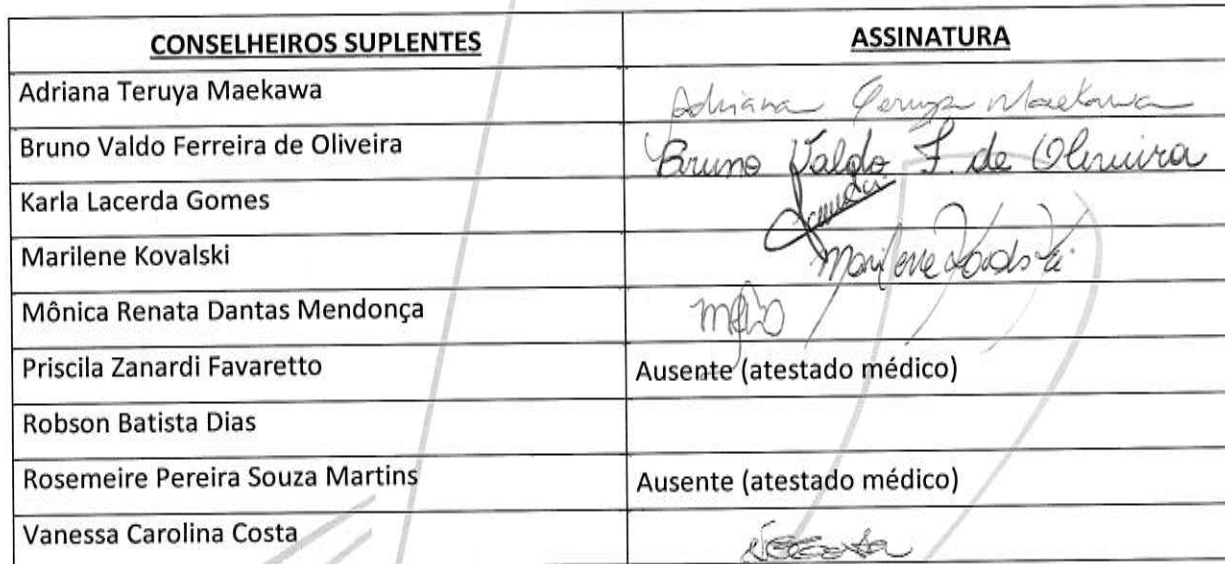 CONSELHEIROS SUPLENTES ASSINATURA
Adriana Teruya Maekawa Adriana Teruya Maekawa
Bruno Valdo Ferreira de Oliveira Bruno Valdo F. de Oliveira
Karla Lacerda Gomes
Marilene Kovalski Marilene Kovalski
Mônica Renata Dantas Mendonça
Priscila Zanardi Favaretto Ausente (atestado médico)
Robson Batista Dias
Rosemeire Pereira Souza Martins Ausente (atestado médico)
Vanessa Carolina Costa